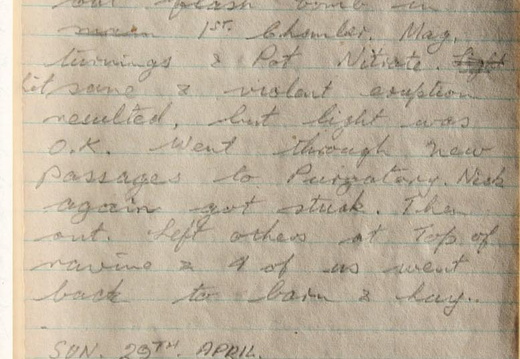 out flash bomb in
main 1ST. Chamber. Mag.
turnings & Pot Nitrate.
lit same & violent eruption
resulted, but light was
O.K. Went through new
passages to Purgatory. Nick
again got stuck. Then
out. Left others at Top of
ravine & 4 of us went
back to barn & hay.
SUN. 29TH. APRIL.